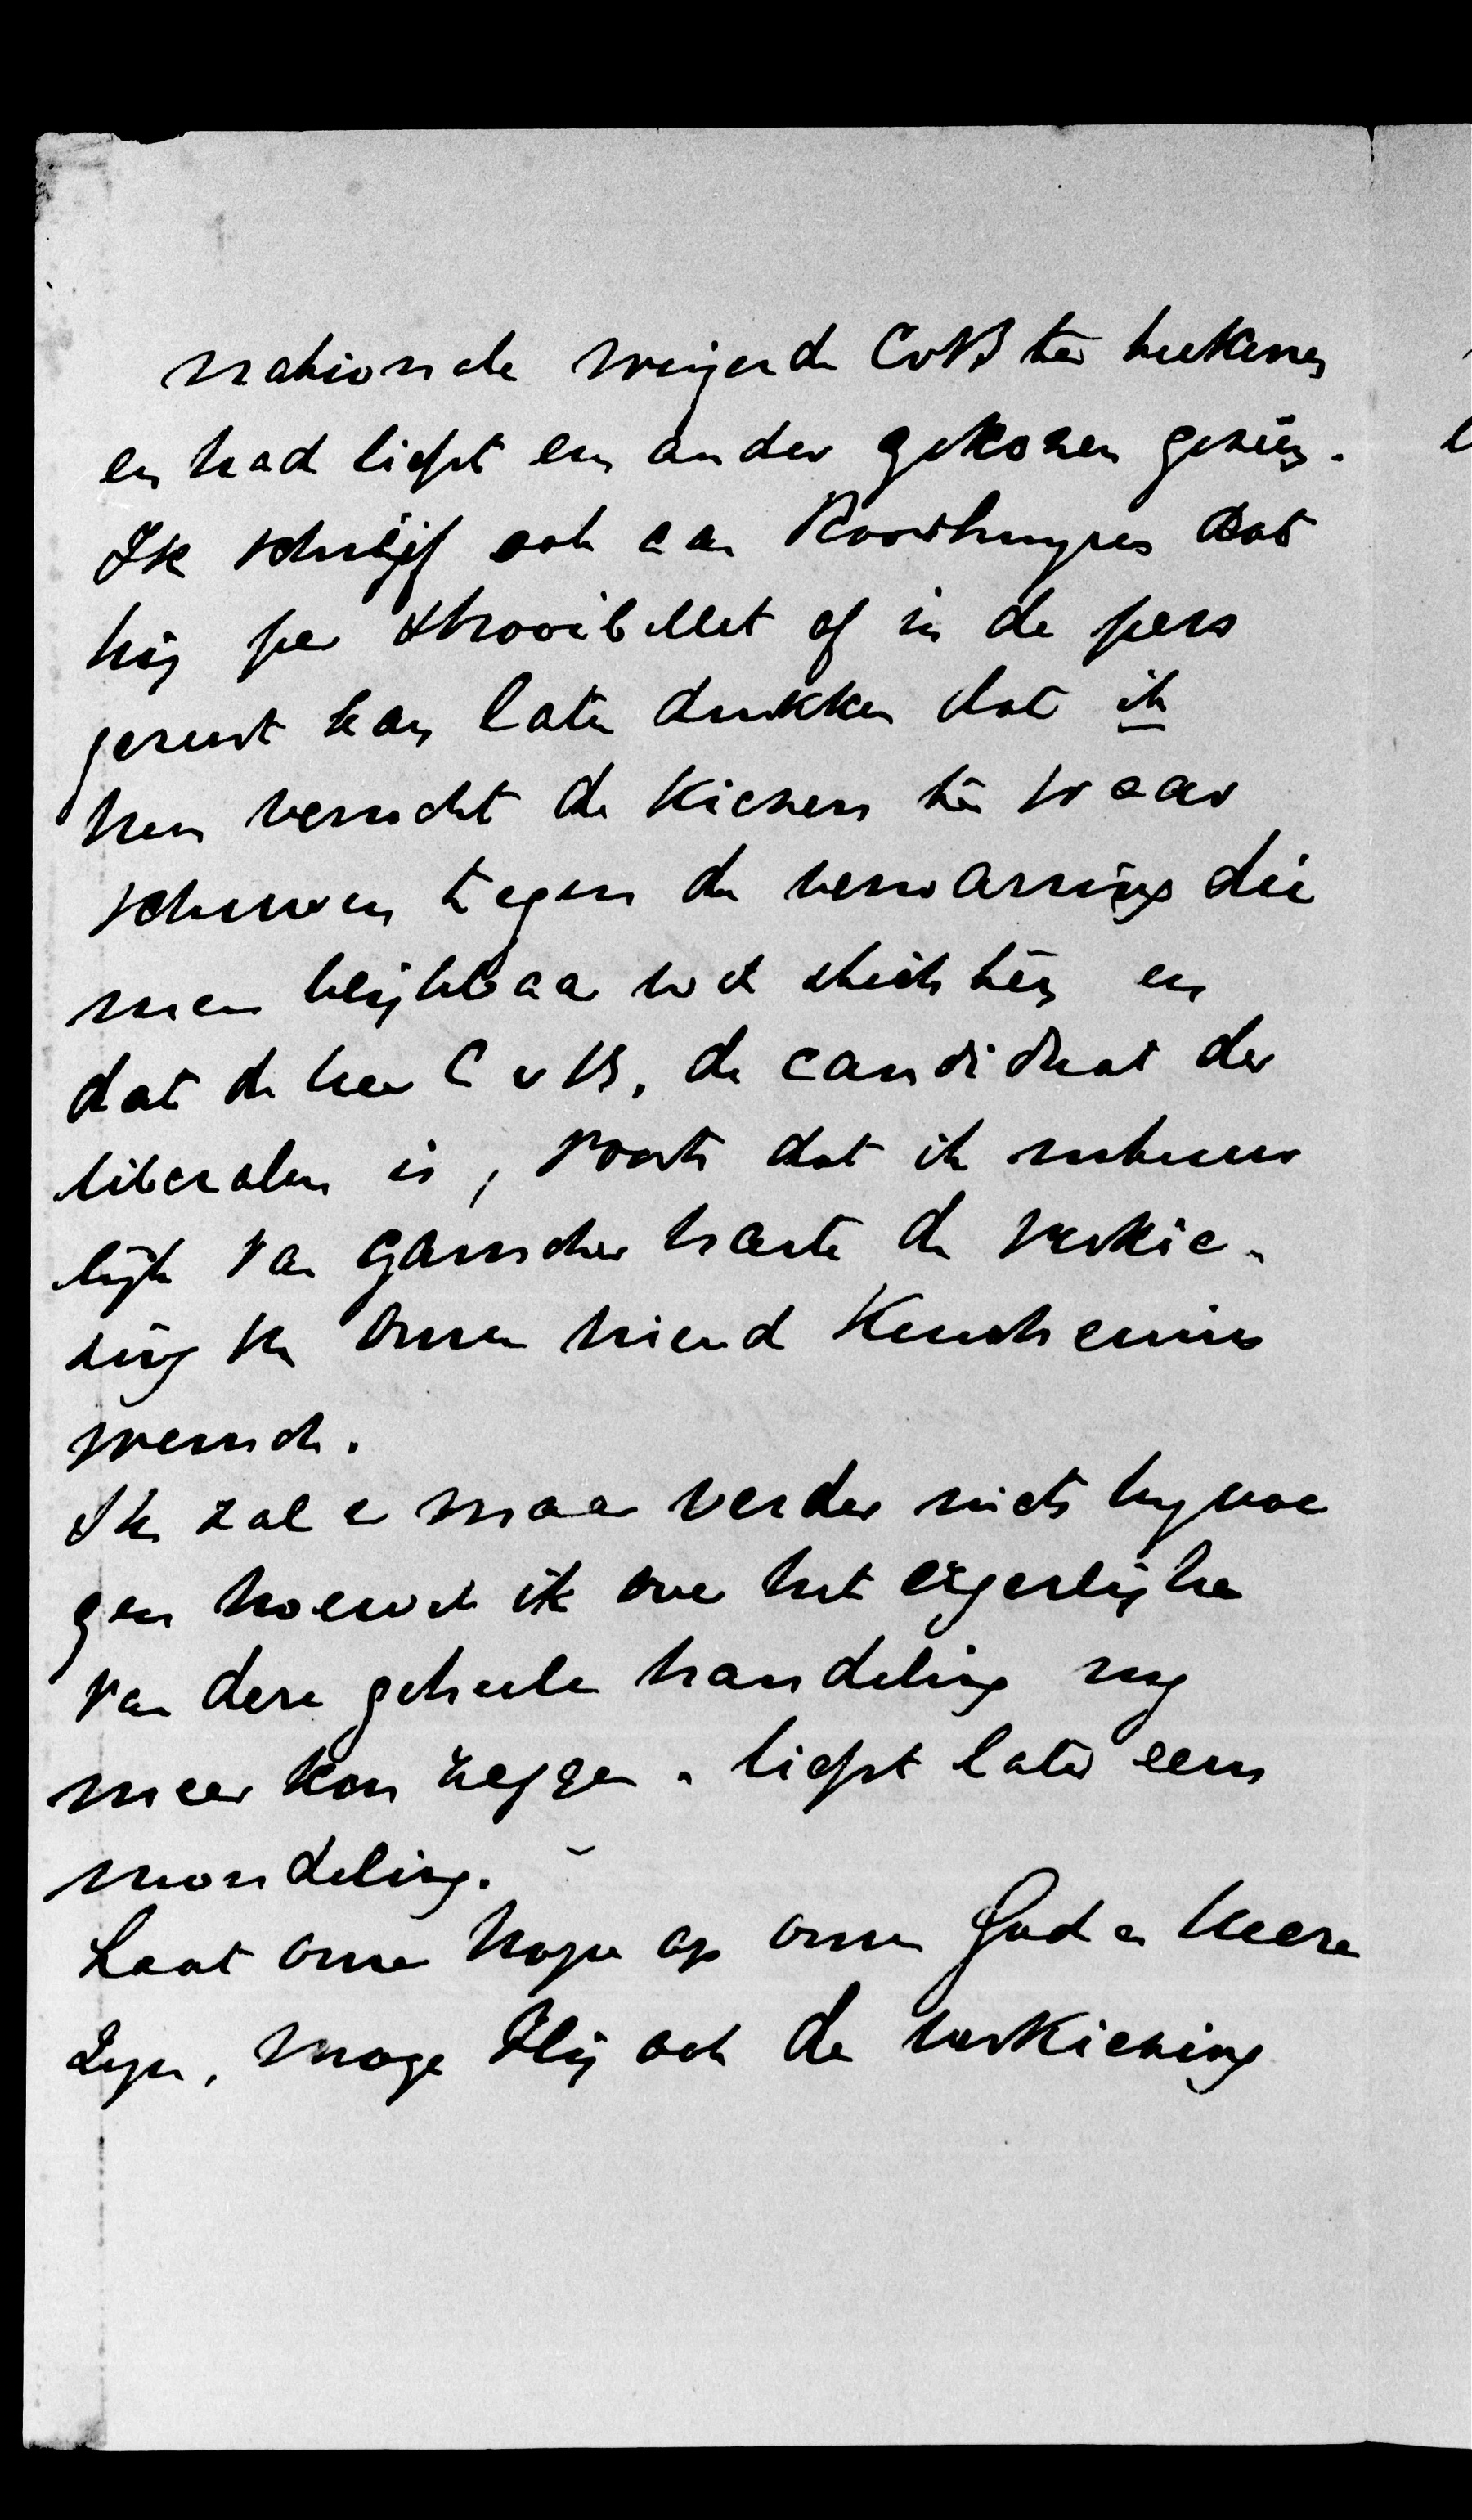 nationale weigerde CvB te teekenen
en had liefst een ander gekozen gezien.
Ik schrijf ook aan Roodhuyzen dat
hij per strooibillet of in de pers
gerust kan laten drukken dat ik
hem verzocht de kiezers te waar
schuwen tegen de verwarring die
men blijkbaar wil stichten en
dat de heer C v B. de candidaat der
liberalen is, voorts dat ik natuur
lijk van ganscher harte de verkie-
zing van onzen vriend Keuchenius
wensch.
Ik zal er maar verder niets byvoe
gen hoewel ik over het eigenlijke
van deze geheele handeling nog
meer kon zeggen. liefst later eens
mondeling.
Laat onze hope op onzen God en Heere
zyn, moge Hij ook de verkiezing